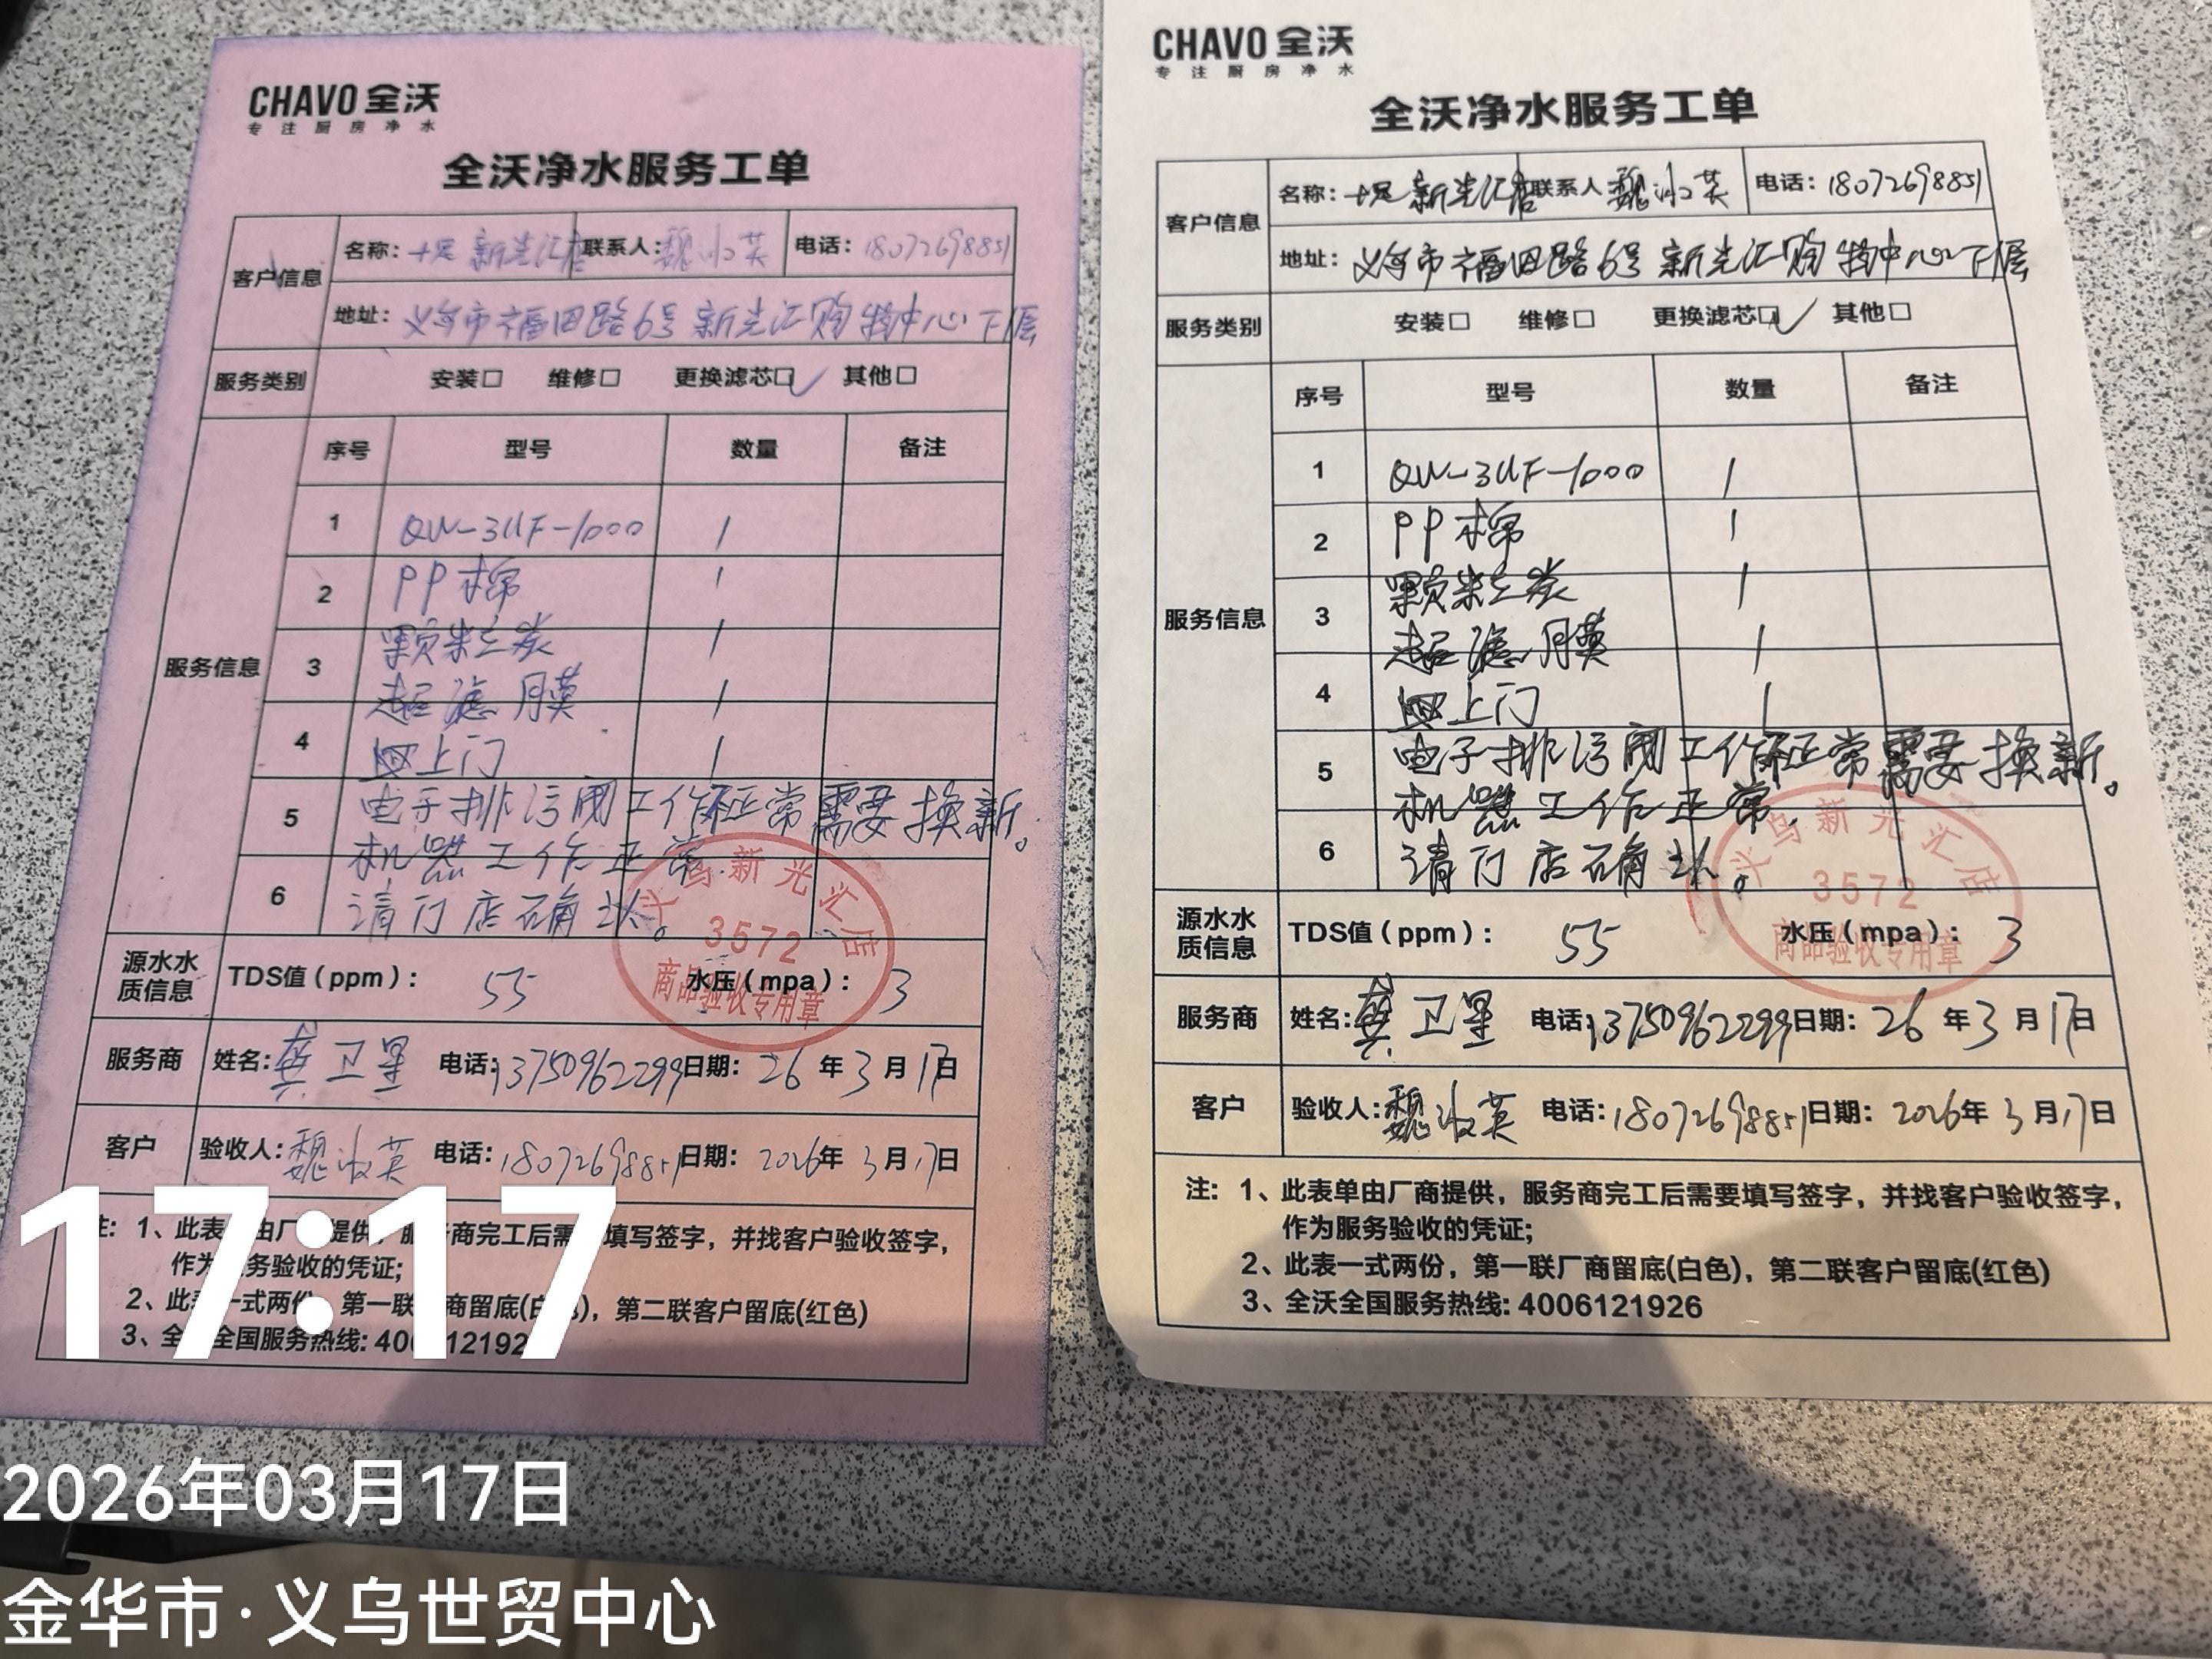 CHAVO 全沃
专注厨房净水
全沃净水服务工单
客户信息 名称: 十足 新光汇店 联系人: 魏淑英 电话: 18072698851
地址: 义乌市福田路6号 新光汇购物中心下层
服务类别 安装□ 维修□ 更换滤芯□✓ 其他□
服务信息 序号 型号 数量 备注
1 QW-3UF-1000 1
2 PP棉 1
3 颗粒炭 1
超滤膜 1
4 上门 1
5 电子排污阀工作不正常需要换新。
机器工作正常.
6 请门店确认。
义乌新光汇店
3572
商品验收专用章
源水水质信息 TDS值(ppm): 55 水压(mpa): 3
服务商 姓名: 龚卫星 电话: 13750962299 日期: 26年3月17日
客户 验收人: 魏淑英 电话: 18072698851 日期: 2026年3月17日
注: 1、此表 由厂 提供, 服务商完工后需 填写签字，并找客户验收签字，
作为 务验收的凭证;
2、此 一式两份，第一联 商留底(白 )，第二联客户留底(红色)
3、全 全国服务热线: 400 12192
CHAVO 全沃
专注厨房净水
全沃净水服务工单
客户信息 名称: 十足 新光汇店 联系人 魏淑英 电话: 18072698851
地址: 义乌市福田路6号 新光汇购物中心下层
服务类别 安装□ 维修□ 更换滤芯□✓ 其他□
服务信息 序号 型号 数量 备注
1 QW-3UF-1000 1
2 PP棉 1
3 颗粒炭 1
超滤膜 1
4 上门 1
5 电子排污阀工作不正常需要换新。
机器工作正常.
6 请门店确认。
义乌新光汇店
3572
商品验收专用章
源水水质信息 TDS值(ppm): 55 水压(mpa): 3
服务商 姓名: 龚卫星 电话: 13750962299 日期: 26年3月17日
客户 验收人: 魏淑英 电话: 18072698851 日期: 2026年3月17日
注: 1、此表单由厂商提供，服务商完工后需要填写签字，并找客户验收签字，
作为服务验收的凭证;
2、此表一式两份，第一联厂商留底(白色)，第二联客户留底(红色)
3、全沃全国服务热线: 4006121926
17:17
2026年03月17日
金华市·义乌世贸中心